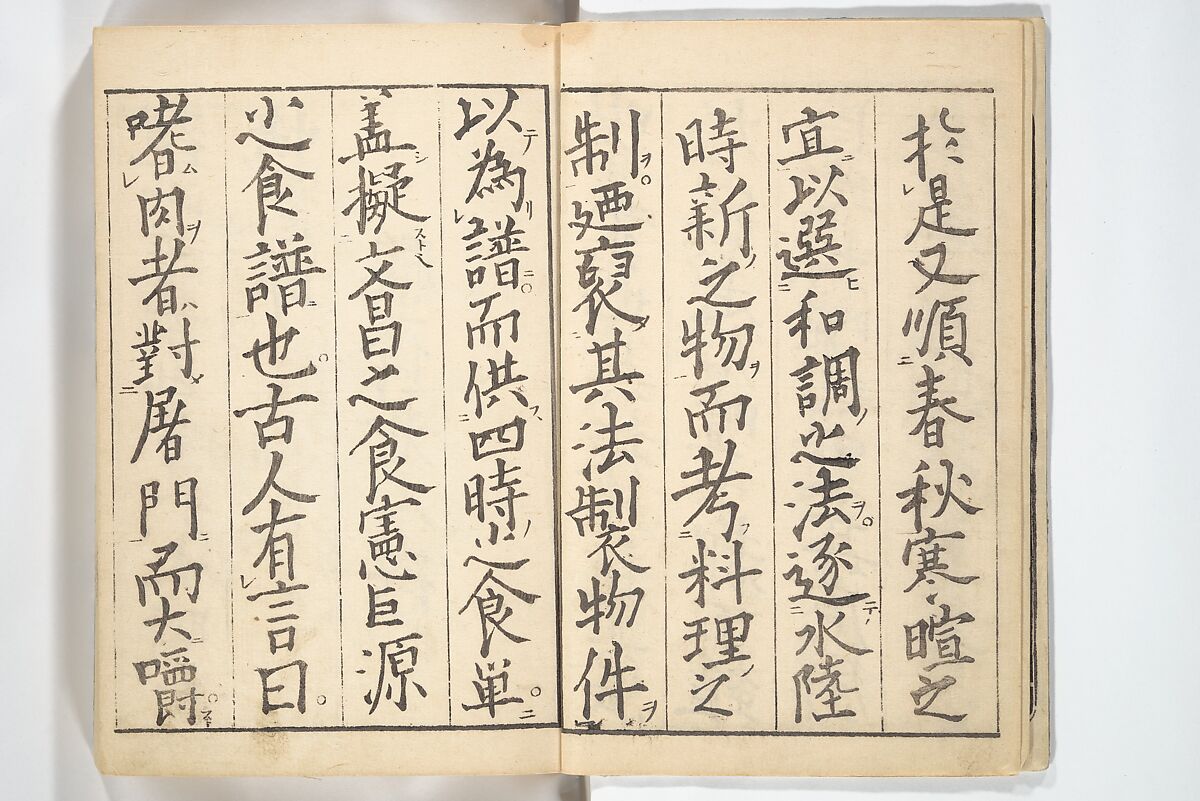 於是又順春秋寒暄之
宜以選和調之法逐水陸
時新之物而考料理之
制廼裒其法製物件
以為譜而供四時之食単
盖擬文昌之食憲巨源
之食譜也古人有言曰
嗜肉者對屠門而大嚼